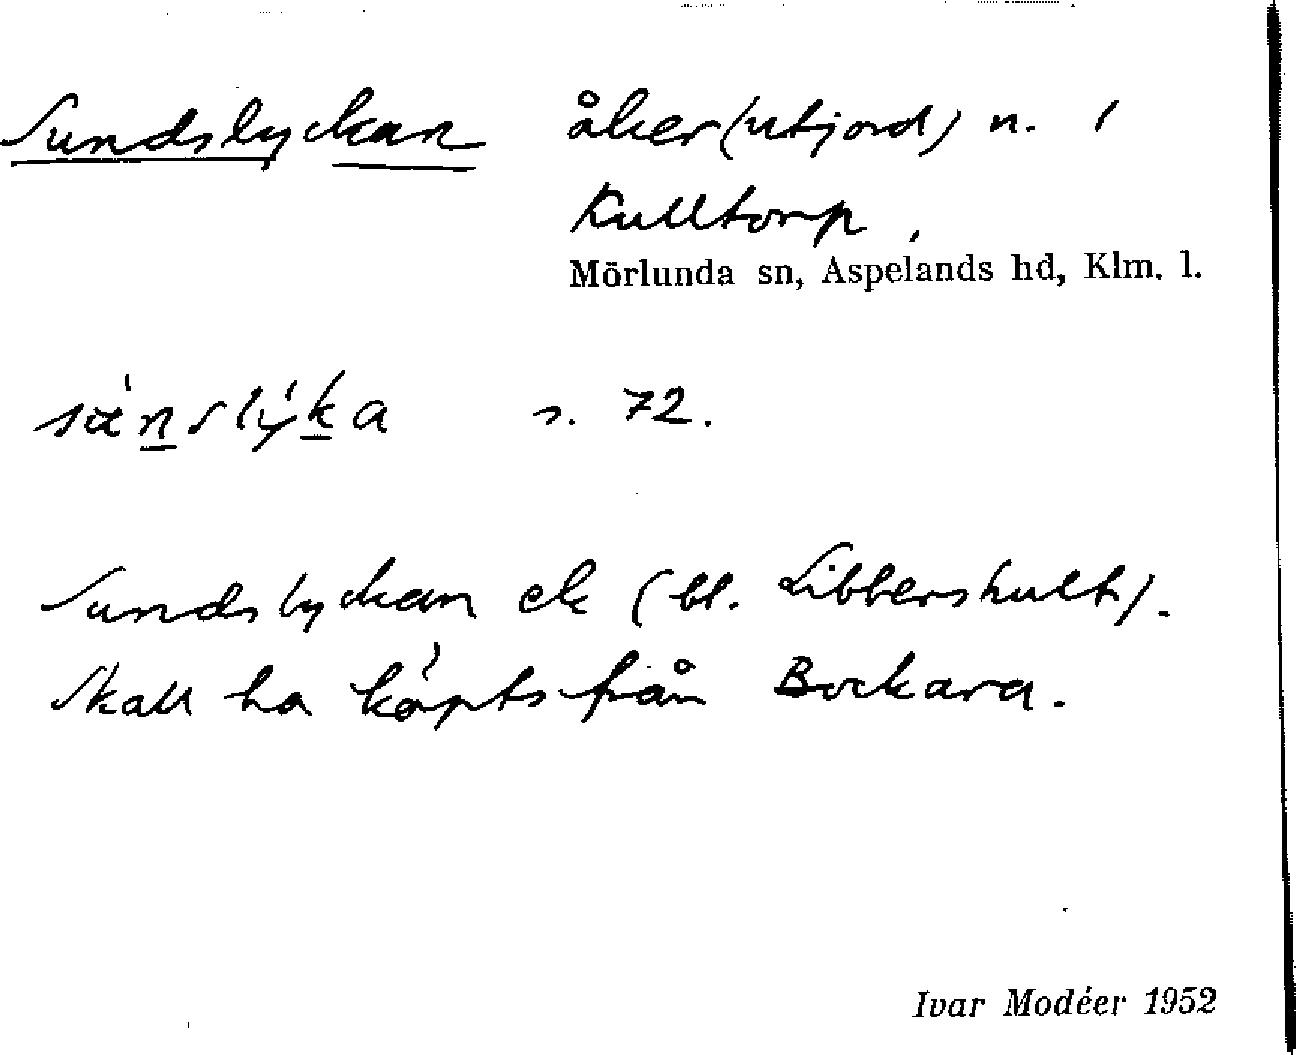 Sundslyckan åker (utjord) n. 1
Kulltorp,
Mörlunda sn, Aspelands hd, Klm. l.
s. 72.
Sundslyckan ek (bl. Libbershult).
Skall ha köpts från Bockara.
Ivar Modéer 1952